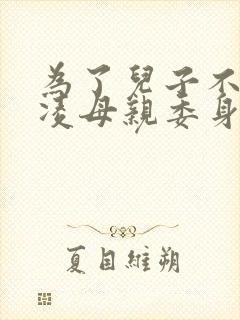 為了兒子不
凌母親委身
夏目維朔